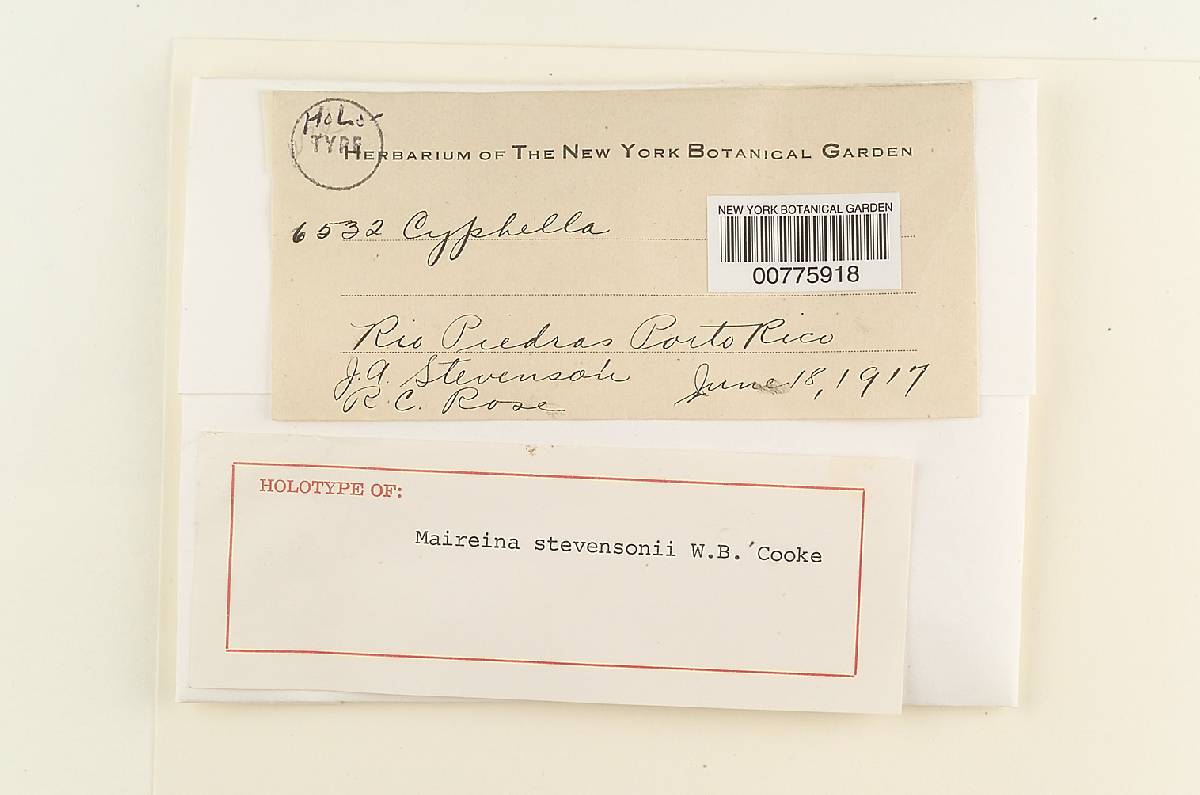 HOLO-
TYPE
HERBARIUM OF THE NEW YORK BOTANICAL GARDEN
6532 Cyphella
NEW YORK BOTANICAL GARDEN
00775918
Rio Piedras Porto Rico
J.A. Stevenson June 18, 1917
R.C. Rose
HOLOTYPE OF:
Maireina stevensonii W.B. Cooke